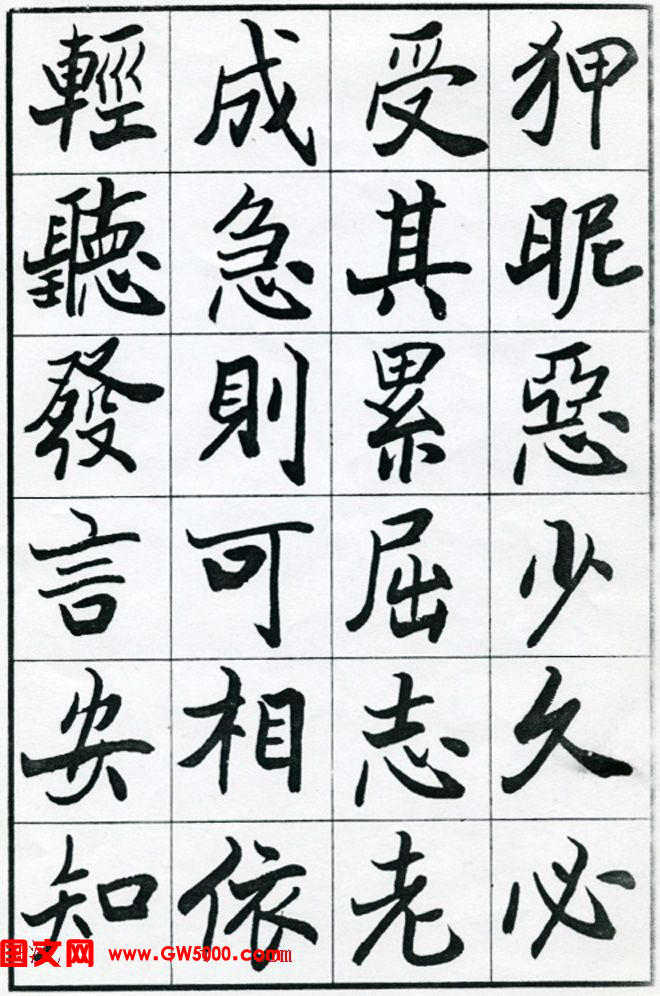 狎昵惡少久必
受其累屈志老
成急則可相依
輕聽發言安知
国文网 www.GW5000.com